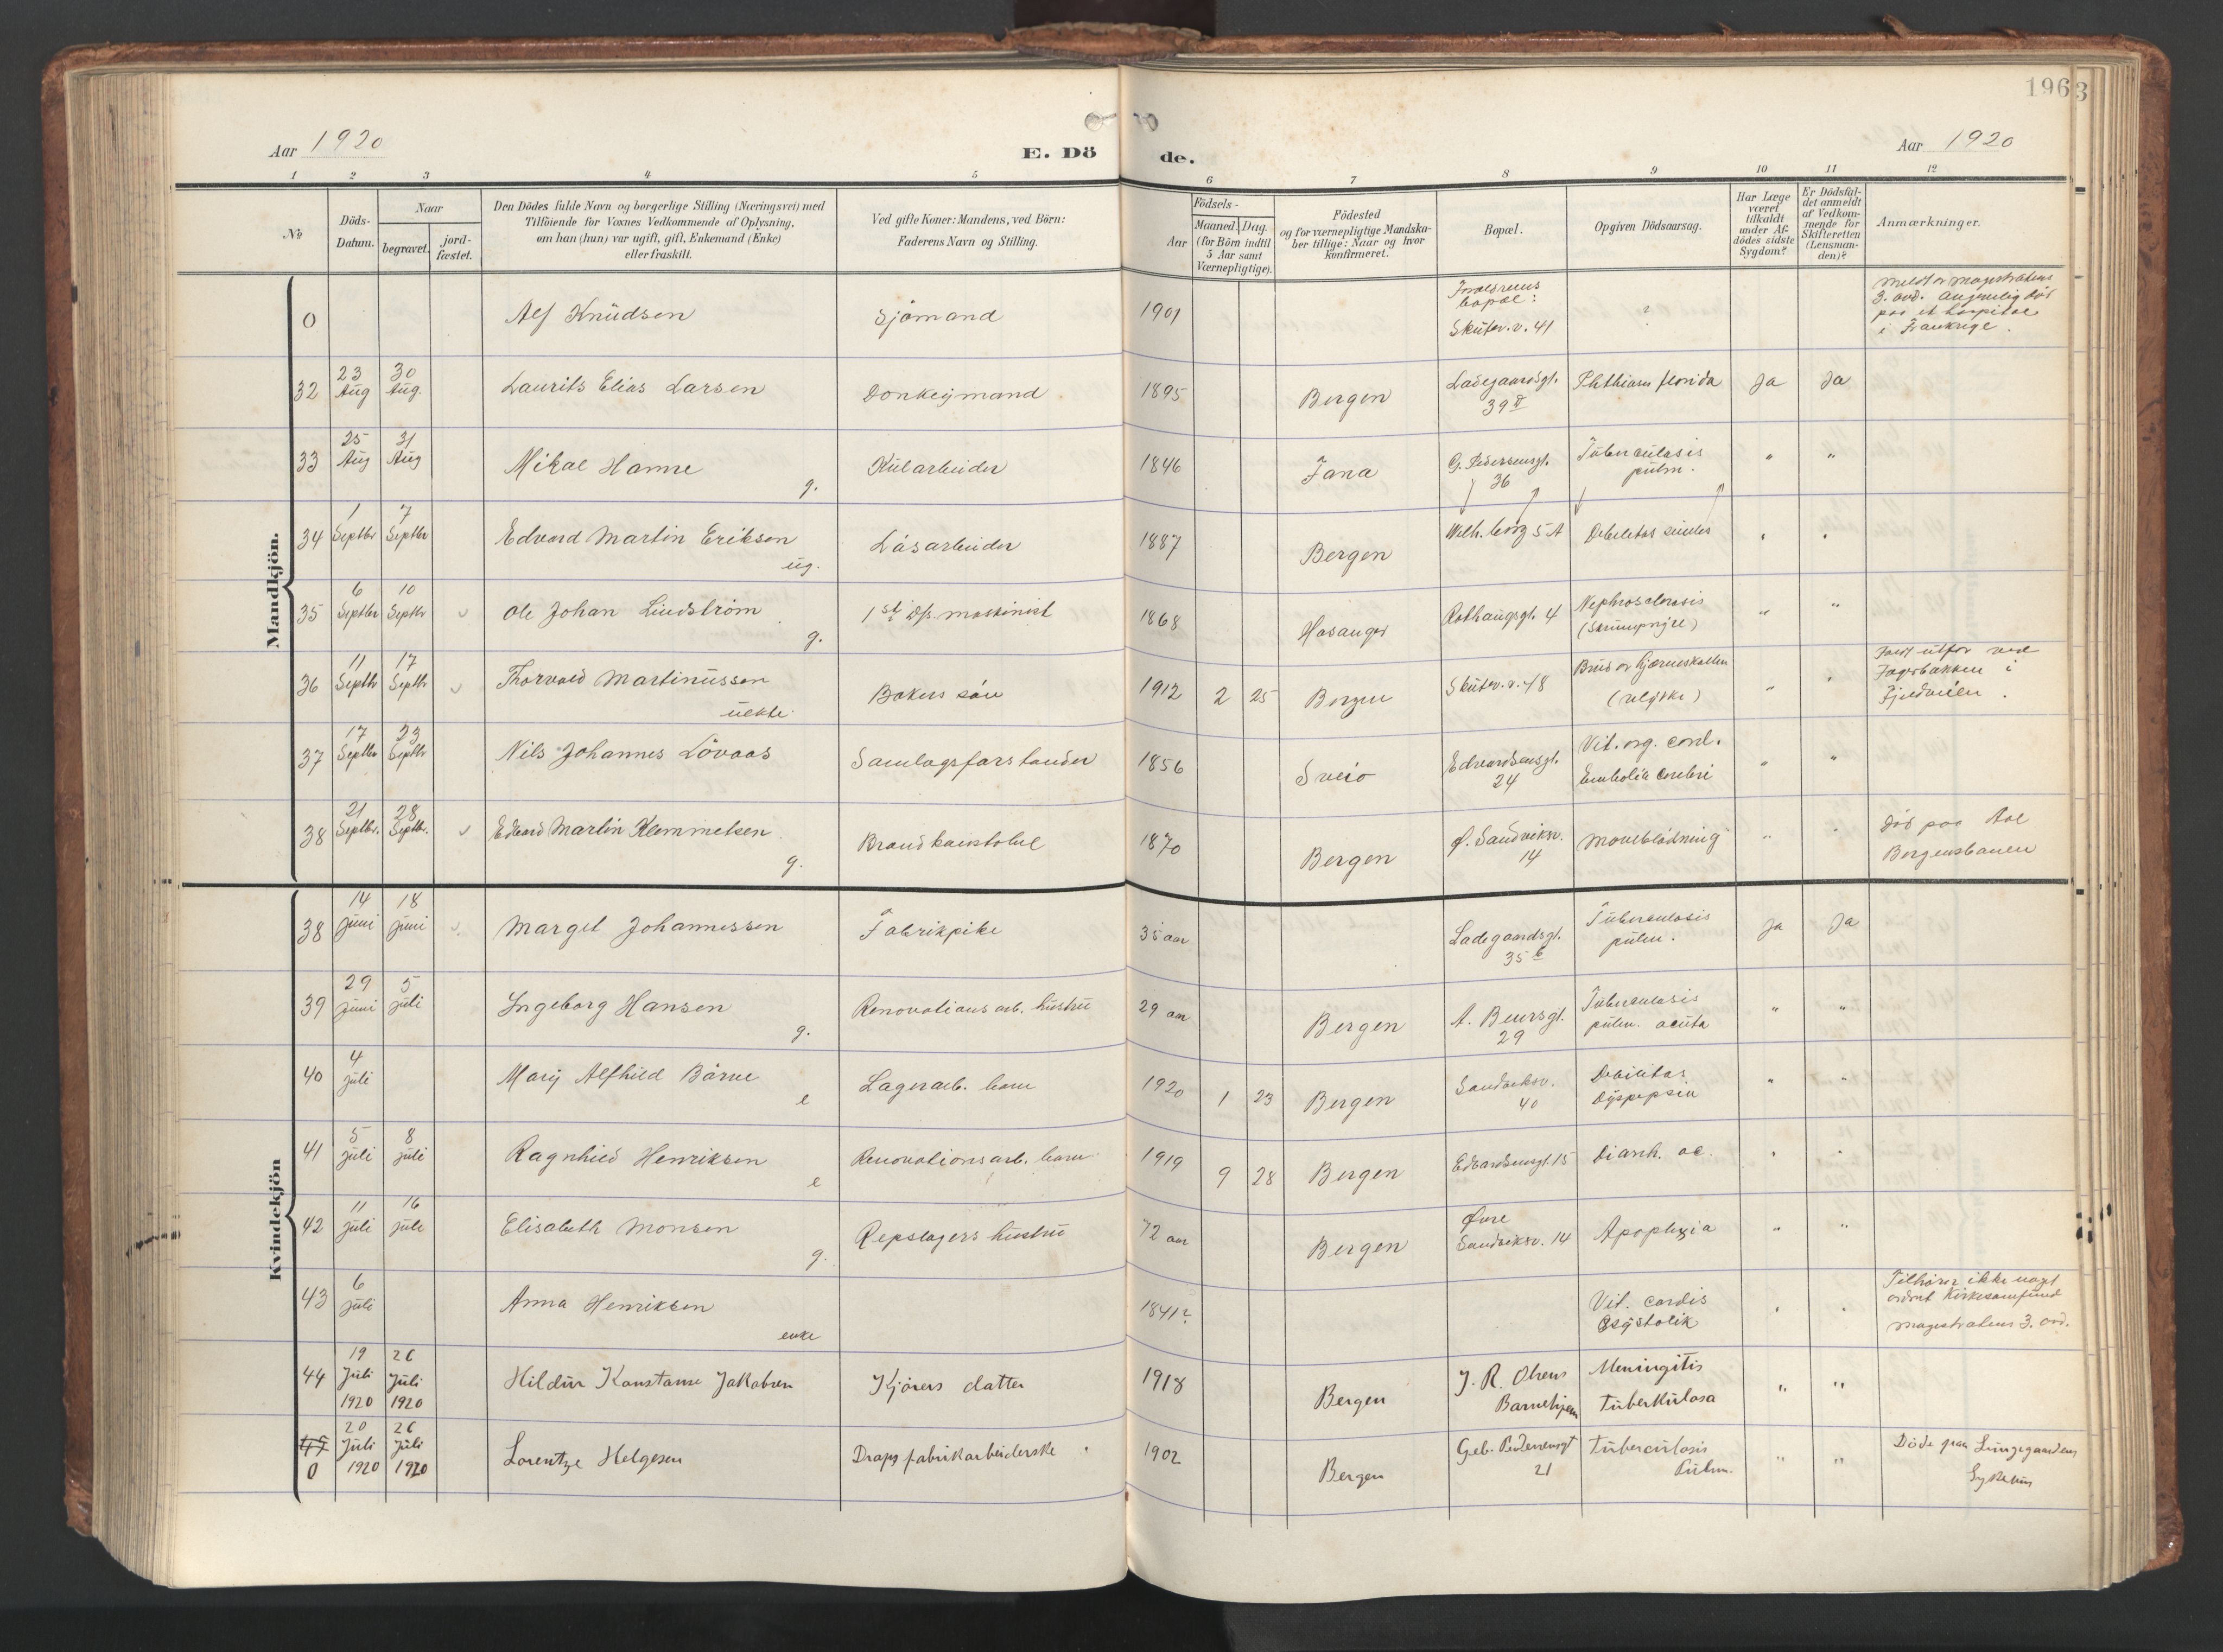 1963
Aar 1920
E. Dö
de.
Aar 1920
1 2 3 4 5 6 7 8 9 10 11 12
No
Döds-Datum.
Naar
begravet.
jord-fæstet.
Den Dödes fulde Navn og borgerlige Stilling (Næringsvei) med
Tilföiende for Voxnes Vedkommende af Oplysning,
om han (hun) var ugift, gift, Enkemand (Enke)
eller fraskilt.
Ved gifte Koner: Mandens, ved Börn:
Faderens Navn og Stilling.
Födsels-
Aar
Maaned. Dag.
(for Börn indtil
5 Aar samt
Værnepligtige).
Födested
og for værnepligtige Mandska-
ber tillige: Naar og hvor
konfirmeret.
Bopæl.
Opgiven Dödsaarsag.
Har Læge
været
tilkaldt
under Af-
dödes sidste
Sygdom?
Er Dödsfal-
det anmeldt
af Vedkom-
mende for
Skifteretten
(Lensman-
den)?
Anmærkninger.
Mandkjön.
0 Alf Knudsen Sjømand 1901 Forældrenes bopæl: Skutev. v. 41 ? meldt av magistratens 3. avd. angivelig död paa et hospital i Frankrige.
32 23 Aug 30 Aug. Laurits Elias Larsen Donkeymand 1895 Bergen Ladegaardsgt. 39 Phthisis florida Ja Ja
33 25 Aug 31 Aug Mikal Hamre g. Kularbeider 1846 Fana G. Pedersensgt. 36 Tuberculosis pulm. " "
34 1 Septbr 7 Septbr Edvard Martin Eriksen ug. Løsarbeider 1887 Bergen 5 A Debilitas senilis " "
35 6 Septbr 10 Septbr Ole Johan Lindström g. 1ste maskinist 1868 Hosanger Rothaugsgt. 4 Nephrosclerosis (Skrumpnyre) " "
36 11 Septbr 17 Septbr Thorvald Martinussen uekte Bakers sön 1912 2 25 Bergen Skutev. v. 48 Brud av hjerneskallen (ulykke) " " Faldt utfor ved i Fjeldveien.
37 17 Septbr 23 Septbr Nils Johannes Lövaas Samlagsforstander 1856 Sveio Edvardsensgt. 24 Vit. org. cord. Embolia cerebri " "
38 21 Septbr. 28 Septbr. Edvard Martin Klemmetsen g. Brandkonstabel 1870 Bergen Ø. Sandviksv. 14 Maveblödning " " död paa Aal Bergensbanen
Kvindekjön
38 14 juni 18 juni Marget Johannessen Fabrikpike 35 aar Ladegaardsgt. 35 b Tuberculosis pulm. Ja Ja
39 29 juni 5 juli Ingeborg Hansen g. Renovationsarb. hustru 29 aar Bergen A. Beuersgt. 29 Tuberculosis pulm. acuta " "
40 4 juli Mary Alfhild Börve e Lagerarb. barn 1920 1 23 Bergen Sandviksv. 40 Debilitas Dyspepsia " "
41 5 juli 8 juli Ragnhild Henriksen e Renovationsarb. barn 1919 9 28 Bergen Edvardsensgt. 15 Diarrh. ac. " "
42 11 juli 16 juli Elisabeth Monsen g. Repslagers hustru 72 aar Bergen Øvre Sandviksv. 14 Apoplexia " "
43 6 juli Anna Henriksen enke 1841? Vit. cordis Asystolik " " Tilhörer ikke noget ordnet Kirkesamfund magistratens 3. avd.
44 19 Juli 1920 26 Juli 1920 Hildur Konstanse Jakobsen Kjörers datter 1918 Bergen J. R. Olsens Barnehjem Meningitis tuberkulosa " "
45 0 20 Juli 1920 26 Juli 1920 Lorentze Helgesen Drops fabrikarbeiderske 1902 Bergen Geb. Pedersensgt 21 Tuberculosis Pulm. " " Döde paa Lungegaardens Sykehus